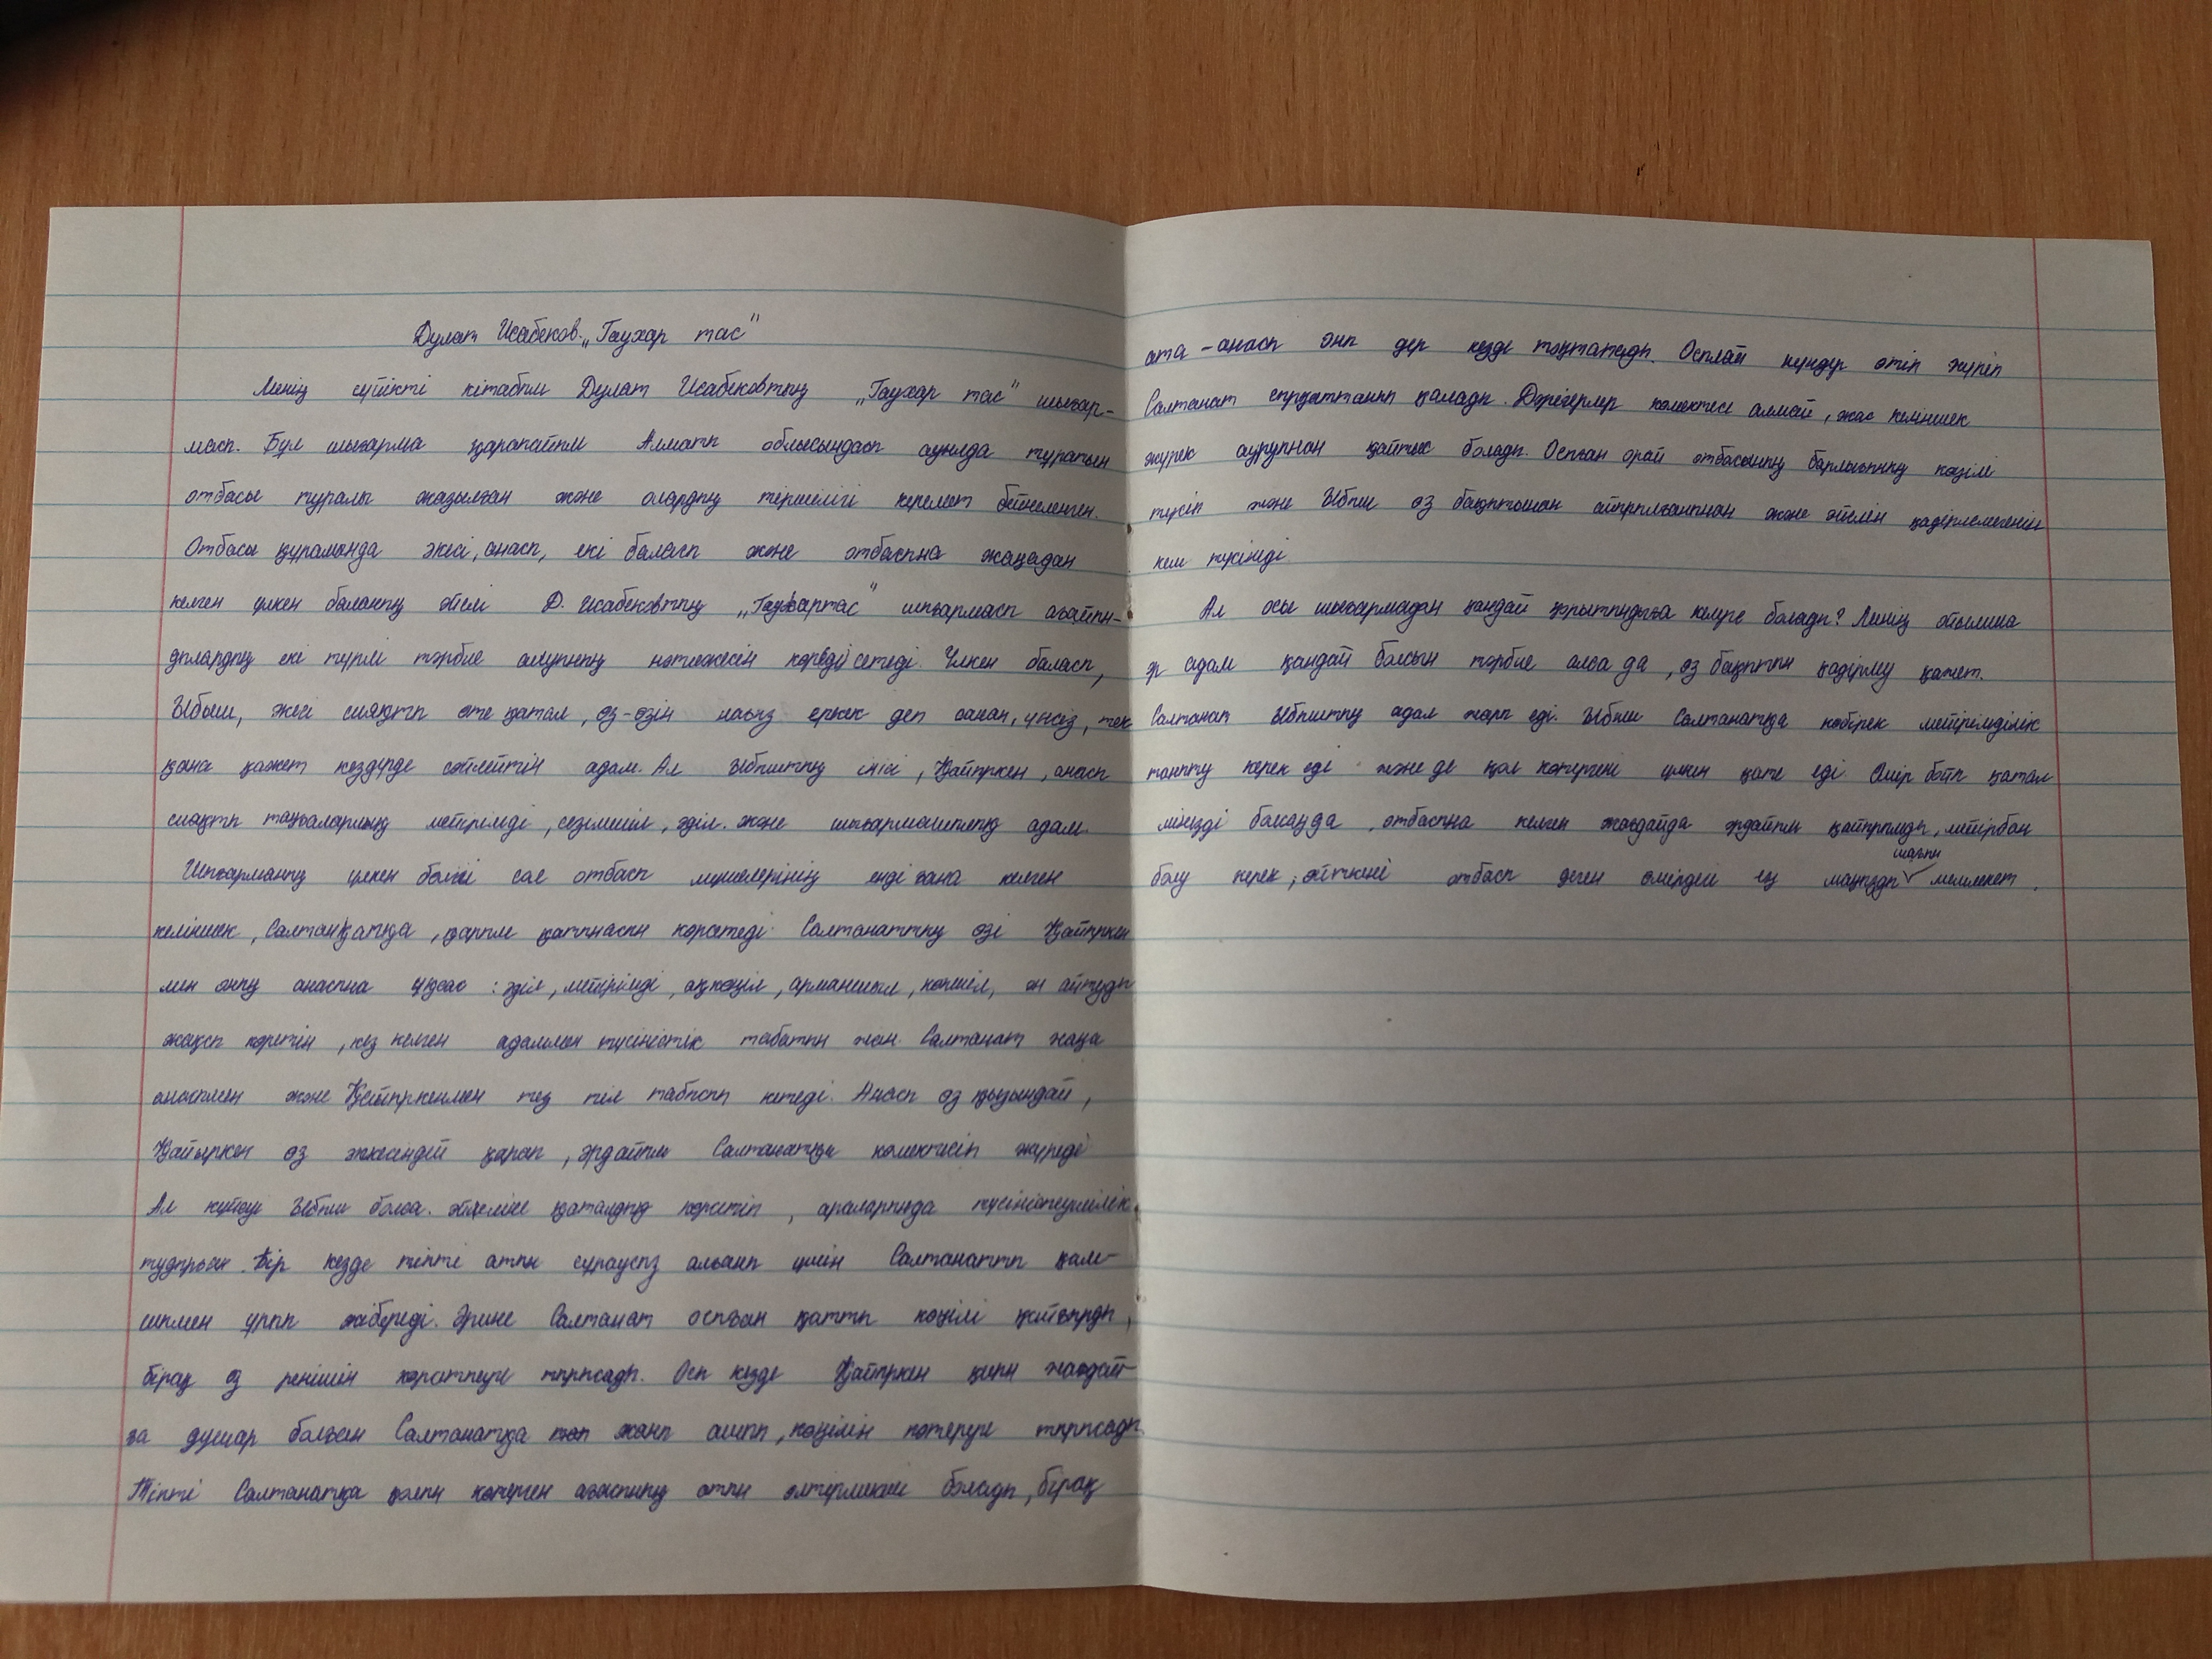 Дулат Исабеков. „Гаухар тас"
Менің сүйікті кітабым Дулат Исабековтың „Гаухар тас" шығар-
масы. Бұл шығарма қарапайым Алматы облысындағы ауылда тұратын
отбасы туралы жазылған және олардың тіршілігі керемет бейнеленген.
Отбасы құрамында әкесі, анасы, екі баласы және отбасына жаңадан
келген үлкен баланың әйелі Д. Исабековтың „Гаухартас" шығармасы ағайын-
дылардың екі түрлі тәрбие алуының нәтижесін көрсетеді. Үлкен баласы,
Ыбыш, әкесі сияқты өте қатал, өз-өзін нағыз еркек деп санап, үнсіз, тек
қана қажет кездерде сөйлейтін адам. Ал Ыбыштың інісі, Қайыркен, анасы
сияқты таңғаларлық мейірімді, сезімшіл, әділ және шығармашылық адам.
Шығарманың үлкен бөлігі сол отбасы мүшелерінің енді ғана келген
келіншек, Салтанатқа, қарым қатынасын көрсетеді. Салтанаттың өзі Қайыркен
мен оның анасына ұқсас : әділ, мейірімді, ақкөңіл, арманшыл, көпшіл, ән айтуды
жақсы көретін, кез келген адаммен түсіністік табатын жан. Салтанат жаңа
анасымен және Қайыркенмен тез тіл табысып кетеді. Анасы өз қызындай,
Қайыркен өз әпкесіндей қарап, әрдайым Салтанатқа көмектесіп жүреді
Ал күйеуі Ыбыш болса әйеліне қаталдық көрсетіп, араларында түсініспеушілік
тудырған. Бір кезде тіпті атын сұраусыз алғаны үшін Салтанатты қам-
шымен ұрып жібереді. Әрине Салтанат осыған қатты көңілі қайғырды,
бірақ өз ренішін көрсетпеуге тырысады. Осы кезде Қайыркен қиын жағдай-
ға душар болған Салтанатқа жаны ашып, көңілін көтеруге тырысады.
Тіпті Салтанатқа қолын көтерген ағасының атын өлтірмекші болады, бірақ
ата-анасы оны дер кезде тоқтатады. Осылай күндер өтіп жүріп
Салтанат сырқаттанып қалады. Дәрігерлер көмектесе алмай, жас келіншек
жүрек ауруынан қайтыс болады. Осыған орай отбасының барлығының көңілі
түсіп және Ыбыш өз бақытынан айырылғанынан және әйелін қадірлемегенін
кеш түсінеді.
Ал осы шығармадан қандай қорытындыға келуге болады? Менің ойымша
әр адам қандай болсын тәрбие алса да, өз бақытын қадірлеу қажет.
Салтанат Ыбыштың адал жары еді. Ыбыш Салтанатқа көбірек мейірімділік
танту керек еді және де қол көтергені үлкен қате еді. Өмір бойы қатал
мінезді болсаңда, отбасына келген жағдайда әрдайым қайырымды, мейірбан
болу керек, өйткені отбасы деген өмірдегі ең маңызды шағын мемлекет.